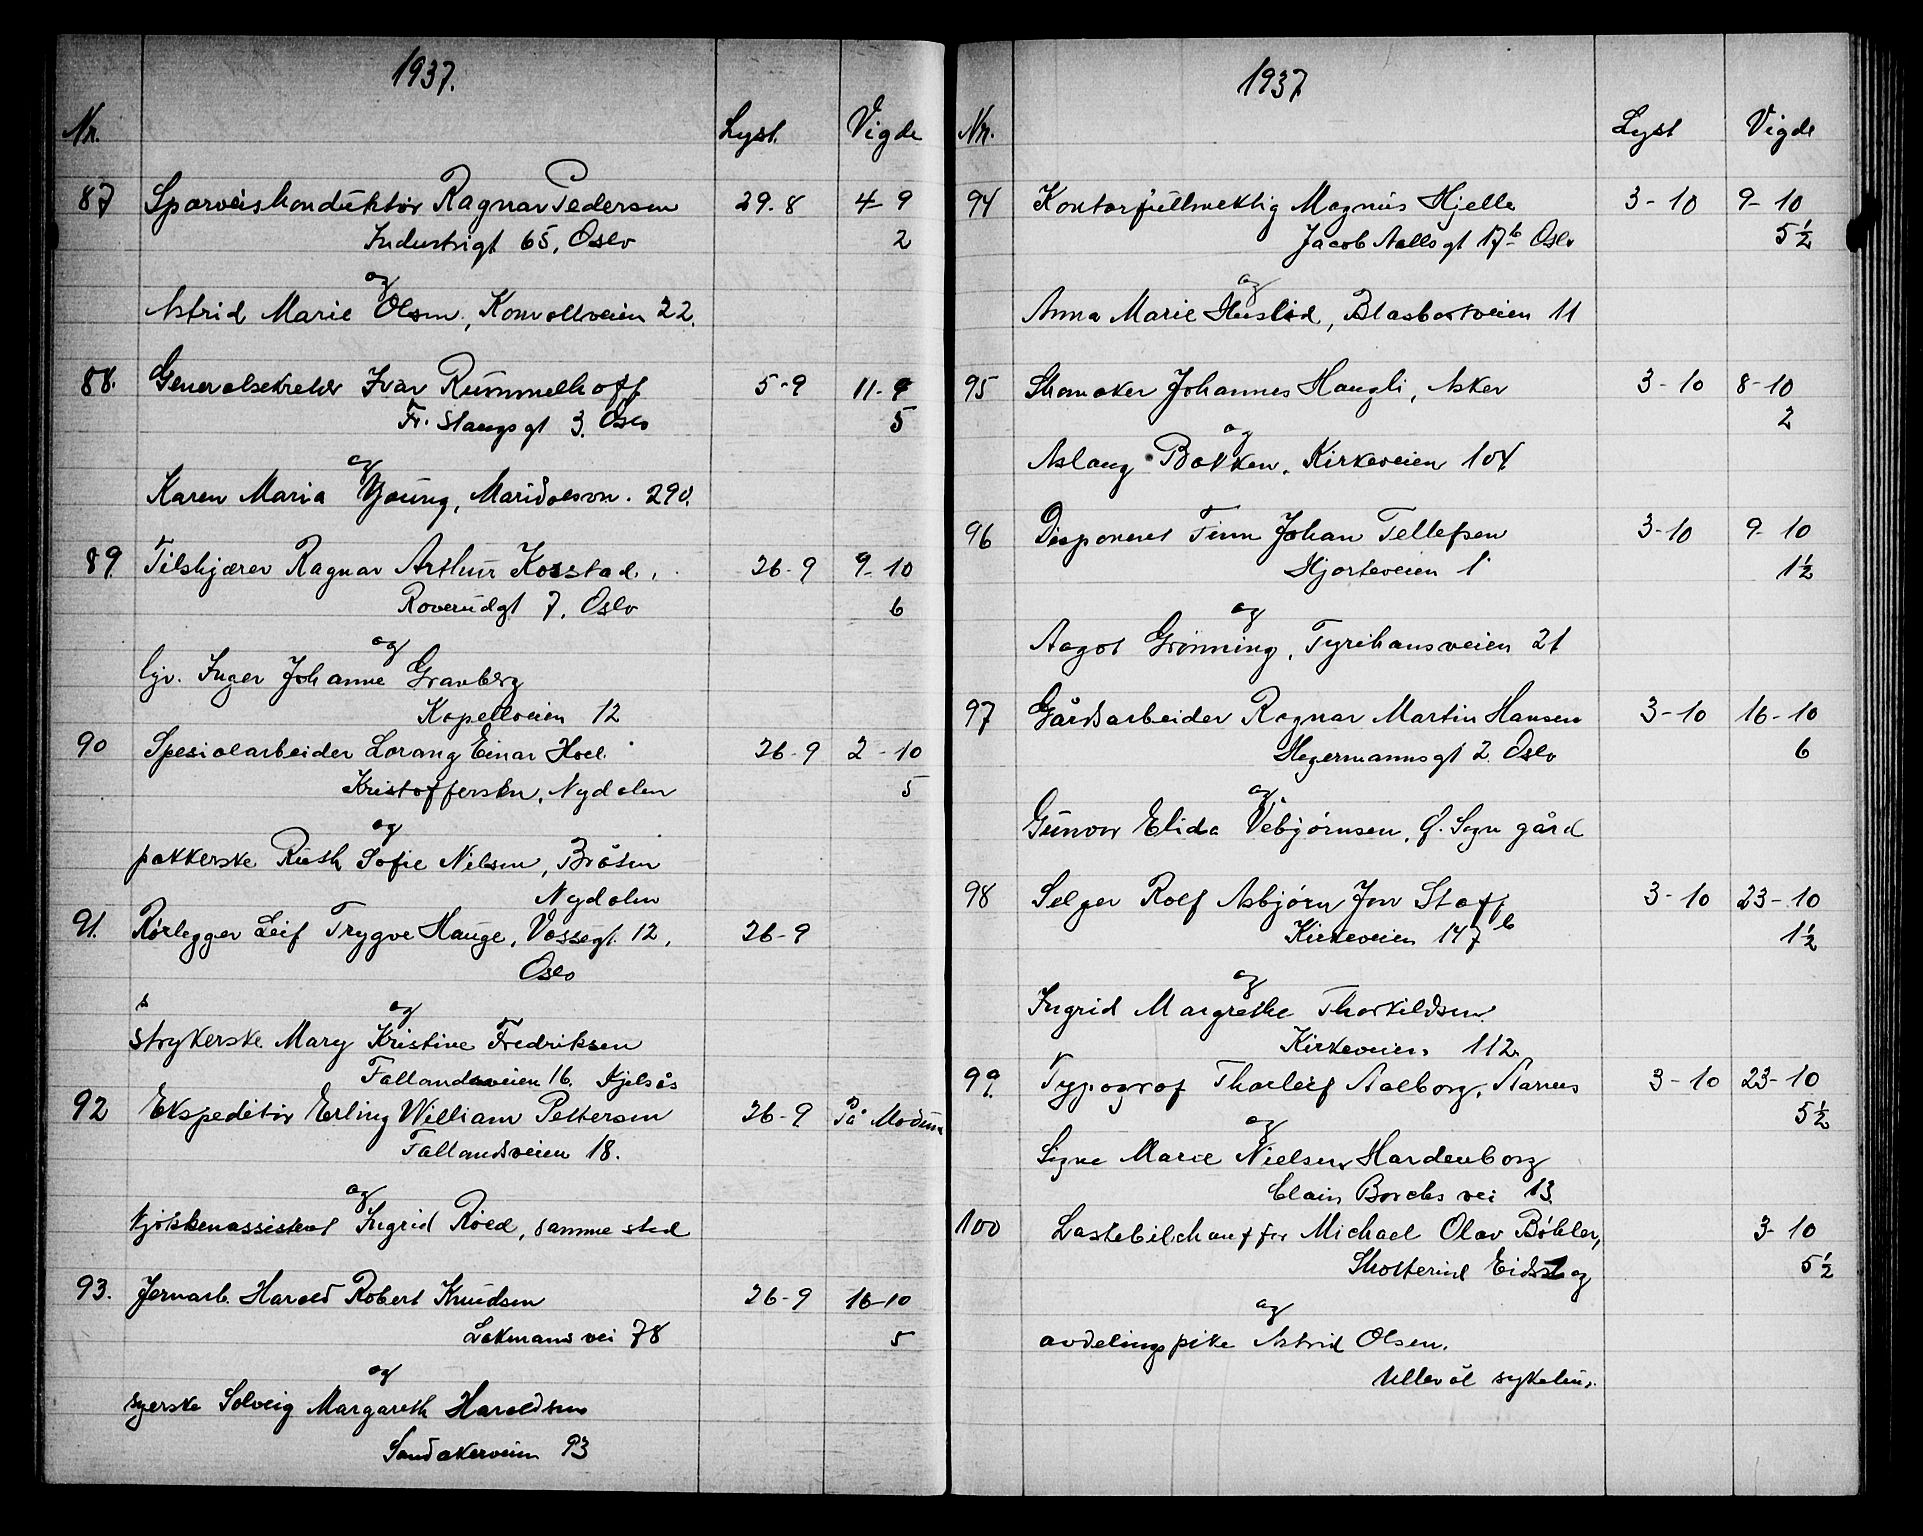 1937.
Nr. Lyst. Vigde
87 Sporveiskonduktør Ragnar Pedersen 29.8 4-9
Industrigt 65, Oslo 2
og
Astrid Marie Olsen, Konvallveien 22.
88. Generalsekretær Ivar Rummelhoff 5-9 11-9
Fr. Stangsgt 3. Oslo 5
og
Karen Maria Young, Maridalsvn. 290.
89. Tilskjærer Ragnar Arthur Kosstad. 26-9 9-10
Roverudgt 7, Oslo 6
og
Inger Johanne Granberg
Kapellveien 12
90 Spesialarbeider Lorang Einar Hoel 26-9 2-10
Kristoffersen, Nydalen 5
og
pakkerske Ruth Sofie Nilsen, Bråten
Nydalen
91. Rørlegger Leif Trygve Hauge, Vossegt. 12, 26-9
Oslo
s og
strykerske Mary Kristine Fredriksen
Fallandsveien 16. Kjelsås
92 Ekspeditør Erling William Pettersen 26-9 På Modum
Fallandsveien 18.
og
kjøkkenassistent Ingrid Røed, samme sted
93. Jernarb. Harald Robert Knudsen 26-9 16-10
Lakmans vei 78 5
og
syerske Solveig Margareth Haraldsen
Sandakerveien 93
1937
Nr. Lyst Vigde
94 Kontorfullmektig Magnus Hjelle 3-10 9-10
Jacob Aallsgt 17b Oslo 5½
og
Anna Marie Huslid, Blaasbortveien 11
95 Skomaker Johannes Haugli, Asker 3-10 8-10
2
og
Aslaug Bakken, Kirkeveien 104
96 Disponent Finn Johan Tellefsen 3-10 9-10
Hjorteveien 1 1½
og
Aagot Grønning, Tyrihansveien 21
97 Gårdsarbeider Ragnar Martin Hansen 3-10 16-10
Hegermannsgt 2. Oslo 6
og
Gunvor Elida Vebjørnsen, Ø. Sogn gård
98 Selger Rolf Asbjørn Jon Staff 3-10 23-10
Kirkeveien 147b 1½
og
Ingrid Margrethe Thorkildsen
Kirkeveien 112
99. Typograf Tharleif Aalborg, Aarnes 3-10 23-10
5½
og
Signe Marie Nielsen Hardenborg
Clain Borchs vei 13.
100 Lastebilchauffør Michael Olav Bøhler, 3-10
Skotterud Eidskog 5½
og
avdelingspike Astrid Olsen.
Ullevål sykehus.